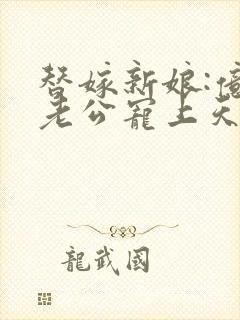 替嫁新娘:億
老公寵上天
龍武國